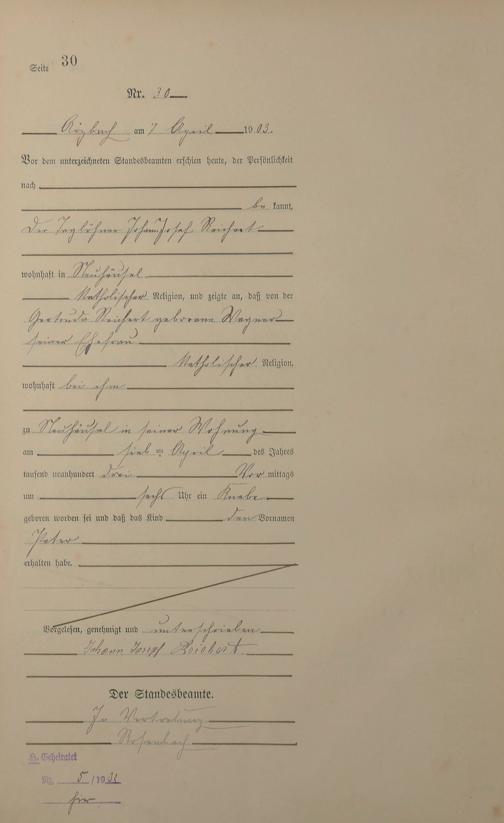 Seite 30
Nr. 30
am 7 April 1903.
Vor dem unterzeichneten Standesbeamten erschien heute, der Persönlichkeit
nach
be kannt,
Der Taglöhner Johann Josef Reichert
wohnhaft in Neuhäusel
katholischer Religion, und zeigte an, daß von der
Gertruda Reichert geborene Wagner
seiner Ehefrau
katholischer Religion,
wohnhaft bei ihm
zu Neuhäusel in seiner Wohnung
am April des Jahres
tausend neunhundert drei Vor mittags
um sechs Uhr ein Knabe
geboren worden sei und daß das Kind den Vornamen
Peter
erhalten habe.
Vorgelesen, genehmigt und unterschrieben
Johann Josef Reichert
Der Standesbeamte.
In Vertretung
Geheiratet
Nr. 5/1932
hier